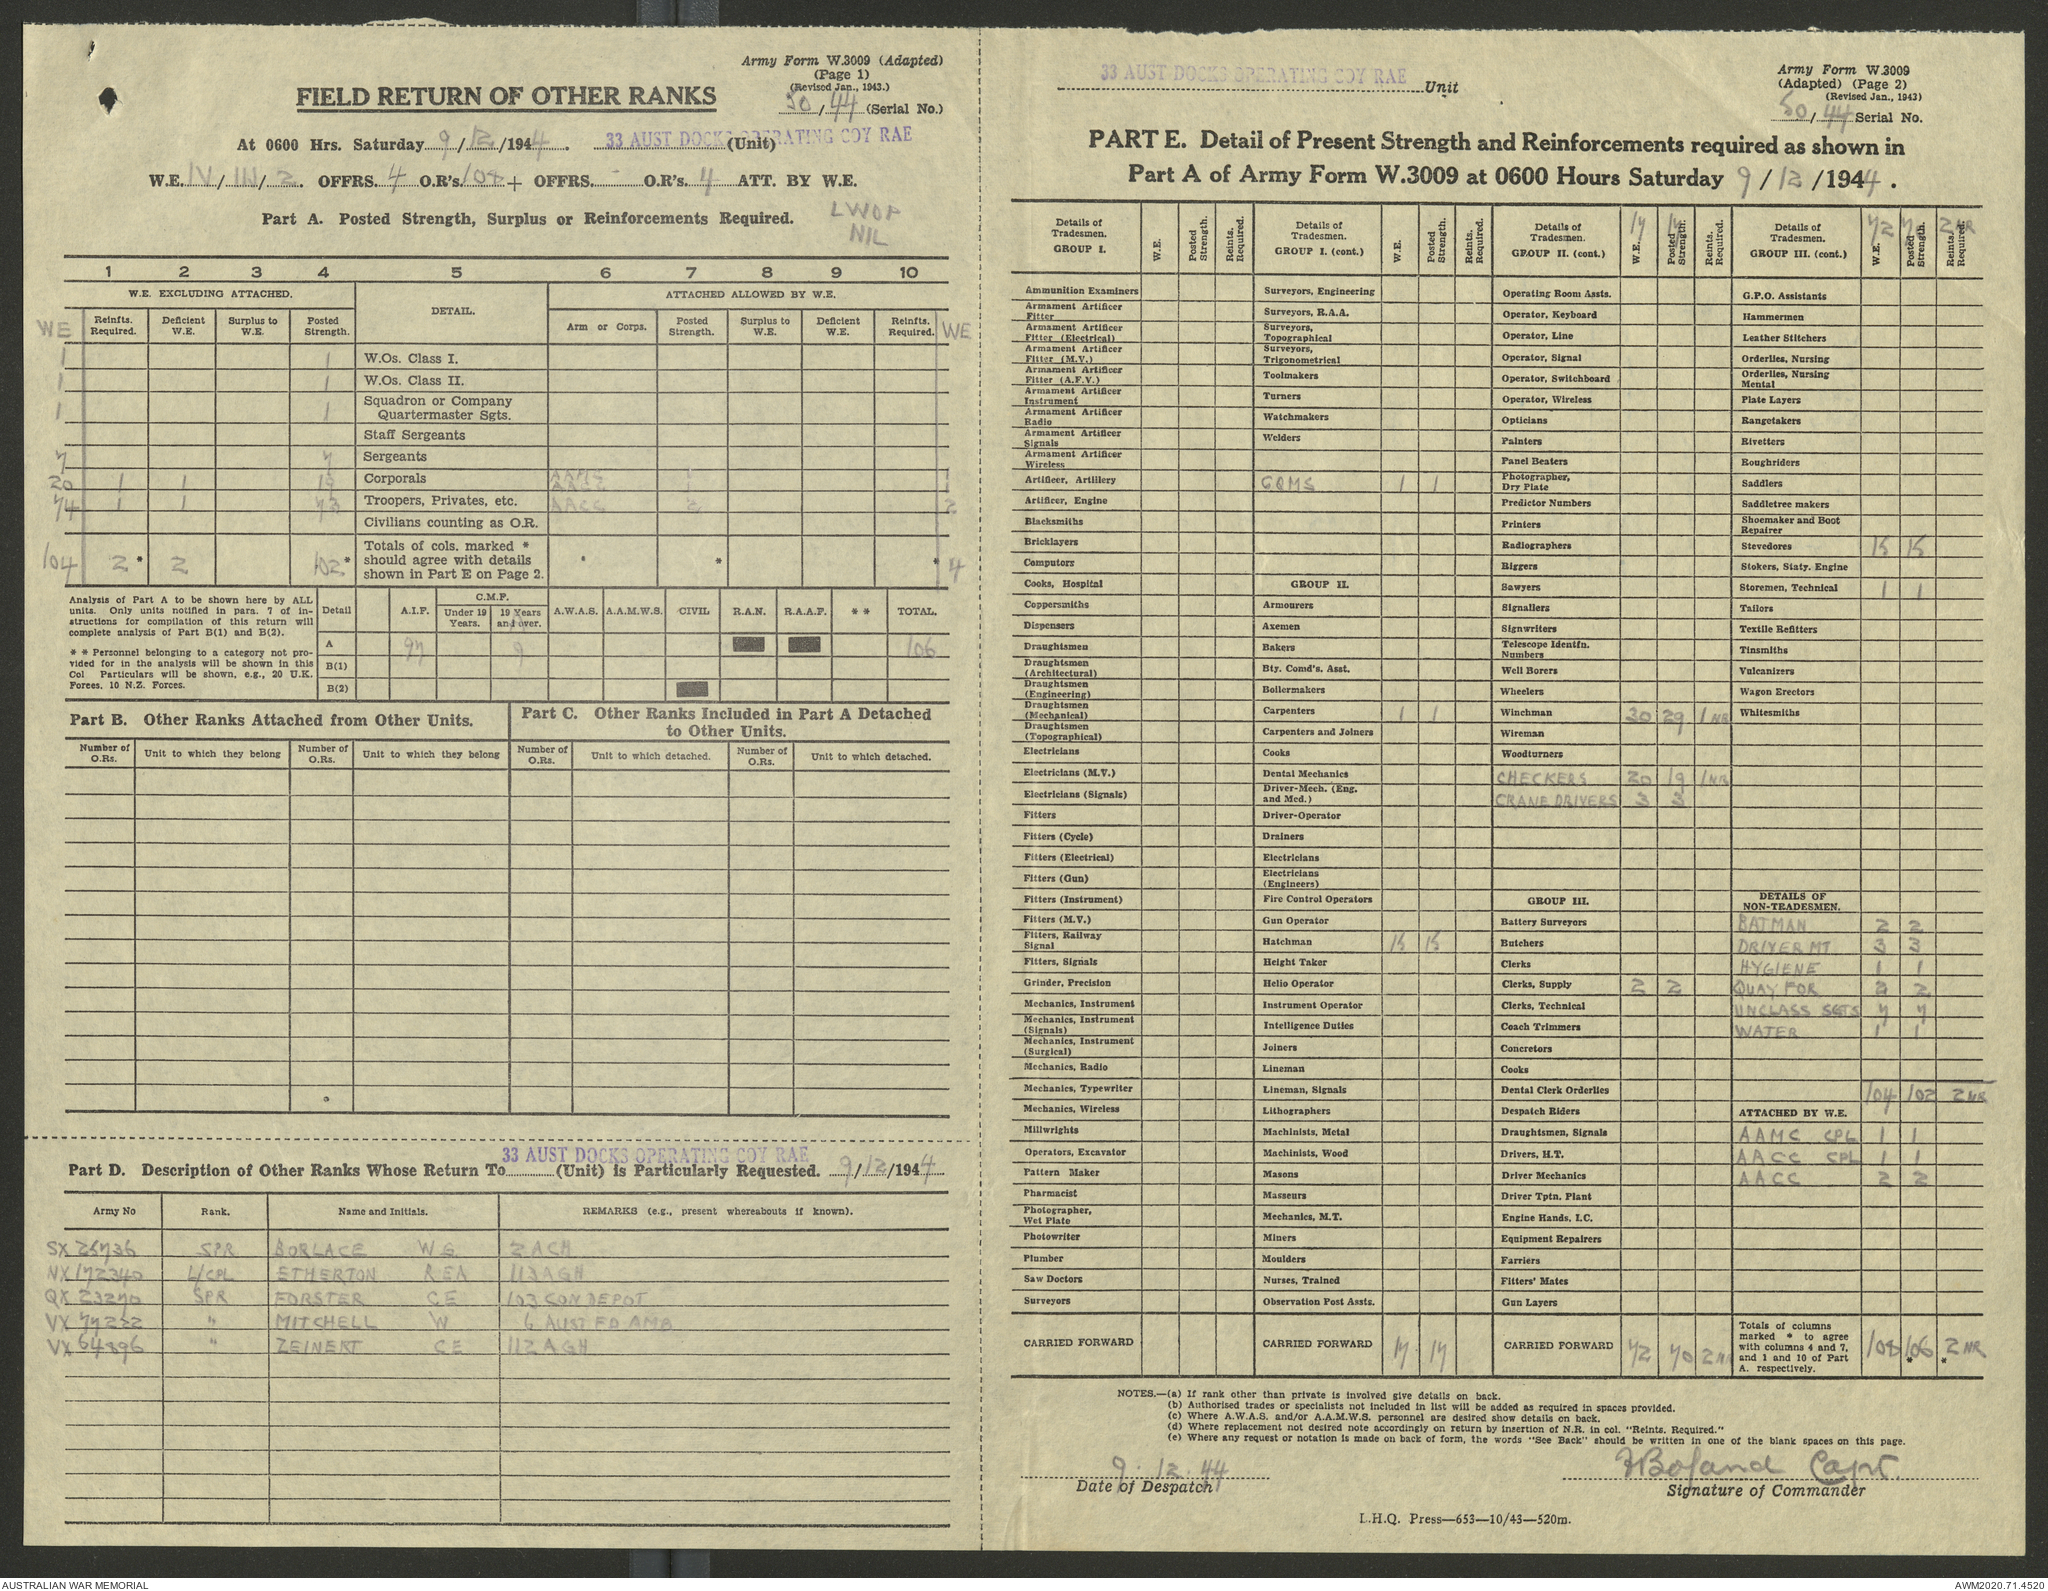 Army Form W.3009 (Adapted)
(Page 1)
(Revised Jan., 1943.)
50/44 (Serial No.)
FIELD RETURN OF OTHER RANKS
At 0600 Hrs. Saturday 9/12/1944. 33 AUST DOCKS OPERATING COY RAE (Unit)
W.E. IV/111/2. OFFRS. 4 O.R's. 108 + OFFRS. - O.R's. 4 ATT. BY W.E.
Part A. Posted Strength, Surplus or Reinforcements Required. LWOP
NIL
1 2 3 4 5 6 7 8 9 10
W.E. EXCLUDING ATTACHED. DETAIL. ATTACHED ALLOWED BY W.E.
WE Reinfts. Required. Deficient W.E. Surplus to W.E. Posted Strength. Arm or Corps. Posted Strength. Surplus to W.E. Deficient W.E. Reinfts. Required. WE
1 1 W.Os. Class I.
1 1 W.Os. Class II.
1 1 Squadron or Company Quartermaster Sgts.
Staff Sergeants
7 7 Sergeants
20 1 1 19 Corporals AAMC 1 1
AACC 1 1
74 1 1 73 Troopers, Privates, etc. AACC 2 2
Civilians counting as O.R.
104 2* 2 102* Totals of cols. marked * should agree with details shown in Part E on Page 2. * * 4
Analysis of Part A to be shown here by ALL units. Only units notified in para. 7 of instructions for compilation of this return will complete analysis of Part B(1) and B(2).
* * Personnel belonging to a category not provided for in the analysis will be shown in this Col Particulars will be shown, e.g., 20 U.K. Forces, 10 N.Z. Forces.
Detail A.I.F. C.M.F. Under 19 Years. 19 Years and over. A.W.A.S. A.A.M.W.S. CIVIL R.A.N. R.A.A.F. * * TOTAL.
A 97 9 106
B(1)
B(2)
Part B. Other Ranks Attached from Other Units.
Part C. Other Ranks Included in Part A Detached to Other Units.
Number of O.Rs. Unit to which they belong Number of O.Rs. Unit to which they belong Number of O.Rs. Unit to which detached. Number of O.Rs. Unit to which detached.
33 AUST DOCKS OPERATING COY RAE
Part D. Description of Other Ranks Whose Return To (Unit) is Particularly Requested. 9/12/1944
Army No Rank. Name and Initials. REMARKS (e.g., present whereabouts if known).
SX 25736 SPR BORLACE W G 2 ACH
NX 172340 L/CPL ETHERTON REA 113 AGH
QX 23270 SPR FORSTER CE 103 CON DEPOT
VX 77222 " MITCHELL W 6 AUST FD AMB
VX 64896 " ZEINERT CE 112 AGH
33 AUST DOCKS OPERATING COY RAE Unit
Army Form W.3009
(Adapted) (Page 2)
(Revised Jan., 1943)
50/44 Serial No.
PART E. Detail of Present Strength and Reinforcements required as shown in
Part A of Army Form W.3009 at 0600 Hours Saturday 9/12/1944.
Details of Tradesmen. GROUP I. W.E. Posted Strength. Reints. Required.
Ammunition Examiners
Armament Artificer Fitter
Armament Artificer Fitter (Electrical)
Armament Artificer Fitter (M.V.)
Armament Artificer Fitter (A.F.V.)
Armament Artificer Instrument
Armament Artificer Radio
Armament Artificer Signals
Armament Artificer Wireless
Artificer, Artillery
Artificer, Engine
Blacksmiths
Bricklayers
Computors
Cooks, Hospital
Coppersmiths
Dispensers
Draughtsmen
Draughtsmen (Architectural)
Draughtsmen (Engineering)
Draughtsmen (Mechanical)
Draughtsmen (Topographical)
Electricians
Electricians (M.V.)
Electricians (Signals)
Fitters
Fitters (Cycle)
Fitters (Electrical)
Fitters (Gun)
Fitters (Instrument)
Fitters (M.V.)
Fitters, Railway Signal
Fitters, Signals
Grinder, Precision
Mechanics, Instrument
Mechanics, Instrument (Signals)
Mechanics, Instrument (Surgical)
Mechanics, Radio
Mechanics, Typewriter
Mechanics, Wireless
Millwrights
Operators, Excavator
Pattern Maker
Pharmacist
Photographer, Wet Plate
Photowriter
Plumber
Saw Doctors
Surveyors
CARRIED FORWARD
Details of Tradesmen. GROUP I. (cont.) W.E. Posted Strength. Reints. Required.
Surveyors, Engineering
Surveyors, R.A.A.
Surveyors, Topographical
Surveyors, Trigonometrical
Toolmakers
Turners
Watchmakers
Welders
CQMS 1 1
GROUP II.
Armourers
Axemen
Bakers
Bty. Comd's. Asst.
Boilermakers
Carpenters 1 1
Carpenters and Joiners
Cooks
Dental Mechanics
Driver-Mech. (Eng. and Med.)
Driver-Operator
Drainers
Electricians
Electricians (Engineers)
Fire Control Operators
Gun Operator
Hatchman 15 15
Height Taker
Helio Operator
Instrument Operator
Intelligence Duties
Joiners
Lineman
Lineman, Signals
Lithographers
Machinists, Metal
Machinists, Wood
Masons
Masseurs
Mechanics, M.T.
Miners
Moulders
Nurses, Trained
Observation Post Assts.
CARRIED FORWARD 17 17
Details of Tradesmen. GROUP II. (cont.) 17 W.E. 17 Posted Strength. Reints. Required.
Operating Room Assts.
Operator, Keyboard
Operator, Line
Operator, Signal
Operator, Switchboard
Operator, Wireless
Opticians
Painters
Panel Beaters
Photographer, Dry Plate
Predictor Numbers
Printers
Radiographers
Riggers
Sawyers
Signallers
Signwriters
Telescope Identfn. Numbers
Well Borers
Wheelers
Winchman 30 29 1 NR
Wireman
Woodturners
CHECKERS 20 19 1 NR
CRANE DRIVERS 3 3
GROUP III.
Battery Surveyors
Butchers
Clerks
Clerks, Supply 2 2
Clerks, Technical
Coach Trimmers
Concretors
Cooks
Dental Clerk Orderlies
Despatch Riders
Draughtsmen, Signals
Drivers, H.T.
Driver Mechanics
Driver Tptn. Plant
Engine Hands, I.C.
Equipment Repairers
Farriers
Fitters' Mates
Gun Layers
CARRIED FORWARD 72 70 2 NR
Details of Tradesmen. GROUP III. (cont.) 72 W.E. 70 Posted Strength. 2 NR Reints. Required.
G.P.O. Assistants
Hammermen
Leather Stitchers
Orderlies, Nursing
Orderlies, Nursing Mental
Plate Layers
Rangetakers
Rivetters
Roughriders
Saddlers
Saddletree makers
Shoemaker and Boot Repairer
Stevedores 15 15
Stokers, Staty. Engine
Storemen, Technical 1 1
Tailors
Textile Refitters
Tinsmiths
Vulcanizers
Wagon Erectors
Whitesmiths
DETAILS OF NON-TRADESMEN.
BATMAN 2 2
DRIVER MT 3 3
HYGIENE 1 1
QUAY FOR 2 2
UNCLASS SGTS 7 7
WATER 1 1
104 102 2 NR
ATTACHED BY W.E.
AAMC CPL 1 1
AACC CPL 1 1
AACC 2 2
Totals of columns marked * to agree with columns 4 and 7, and 1 and 10 of Part A. respectively. 108 106* 2 NR*
NOTES.—(a) If rank other than private is involved give details on back.
(b) Authorised trades or specialists not included in list will be added as required in spaces provided.
(c) Where A.W.A.S. and/or A.A.M.W.S. personnel are desired show details on back.
(d) Where replacement not desired note accordingly on return by insertion of N.R. in col. "Reints. Required."
(e) Where any request or notation is made on back of form, the words "See Back" should be written in one of the blank spaces on this page.
9.12.44 Boland Capt.
Date of Despatch Signature of Commander
L.H.Q. Press—653—10/43—520m.
AUSTRALIAN WAR MEMORIAL AWM2020.71.4520